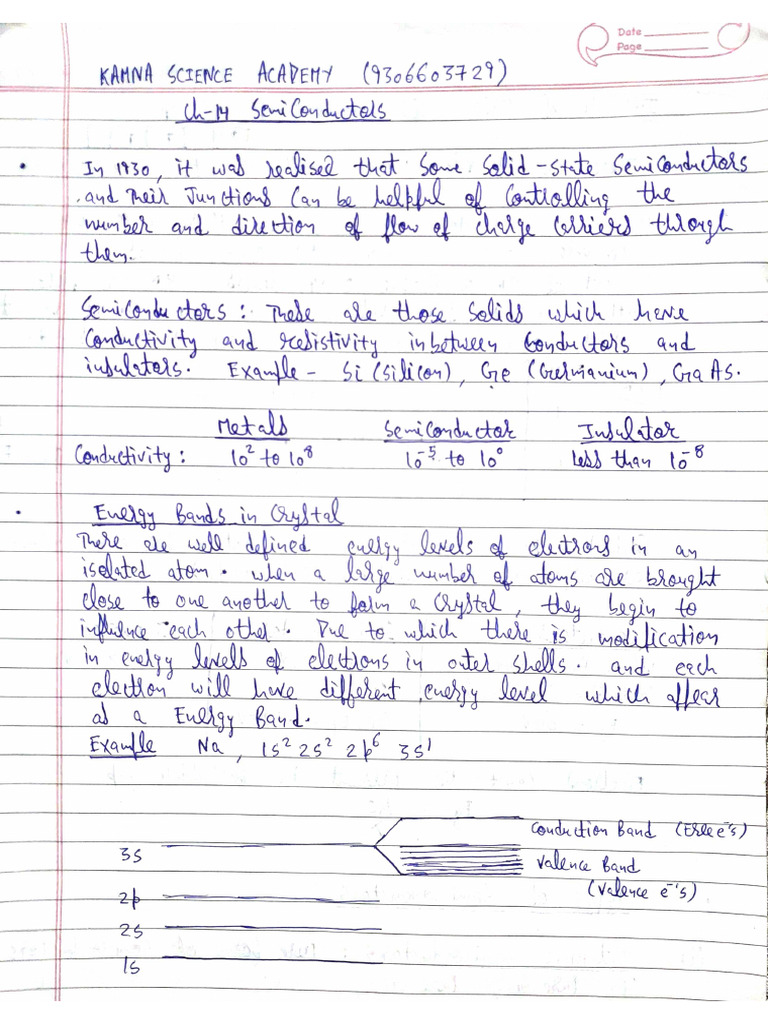 Date
Page
KAMNA SCIENCE ACADEMY (9306603729)
Ch-14 SemiConductors
• In 1930, it was realised that some solid-state semiconductors
and their junctions can be helpful of controlling the
number and direction of flow of charge carriers through
them.
Semiconductors: These are those solids which have
conductivity and resistivity inbetween conductors and
insulators. Example - Si (Silicon), Ge (Germanium), GaAs.
Metals Semiconductor Insulator
Conductivity: 10² to 10⁸ 10⁻⁵ to 10⁰ Less than 10⁻⁸
• Energy Bands in Crystal
There are well defined energy levels of electrons in an
isolated atom. when a large number of atoms are brought
close to one another to form a crystal, they begin to
influence each other. Due to which there is modification
in energy levels of electrons in outer shells. and each
electron will have different energy level which appear
as a Energy Band.
Example Na, 1s² 2s² 2p⁶ 3s¹
Conduction Band (Free e⁻'s)
3s
Valence Band
(Valence e⁻'s)
2p
2s
1s